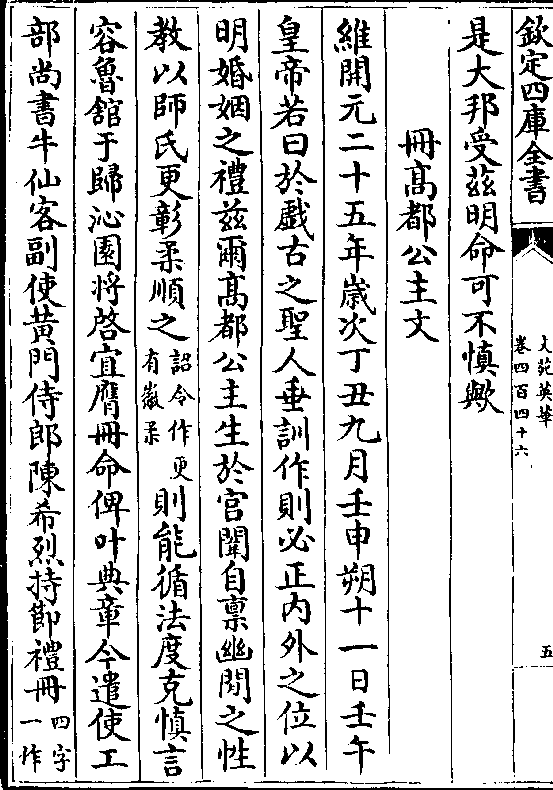 欽定四庫全書
文苑英華
卷四百四十六
五
是大邦受兹明命可不慎歟
冊髙都公主文
維開元二十五年歲次丁丑九月壬申朔十一日壬午
皇帝若曰於戲古之聖人垂訓作則必正内外之位以
明婚姻之禮兹爾髙都公主生於宫闈自禀幽閒之性
教以師氏更彰柔順之詔令作更有徽柔則能循法度克慎言
容魯舘于歸沁園将啓宜膺冊命俾叶典章今遣使工
部尚書牛仙客副使黄門侍郎陳希烈持節禮冊四字一作